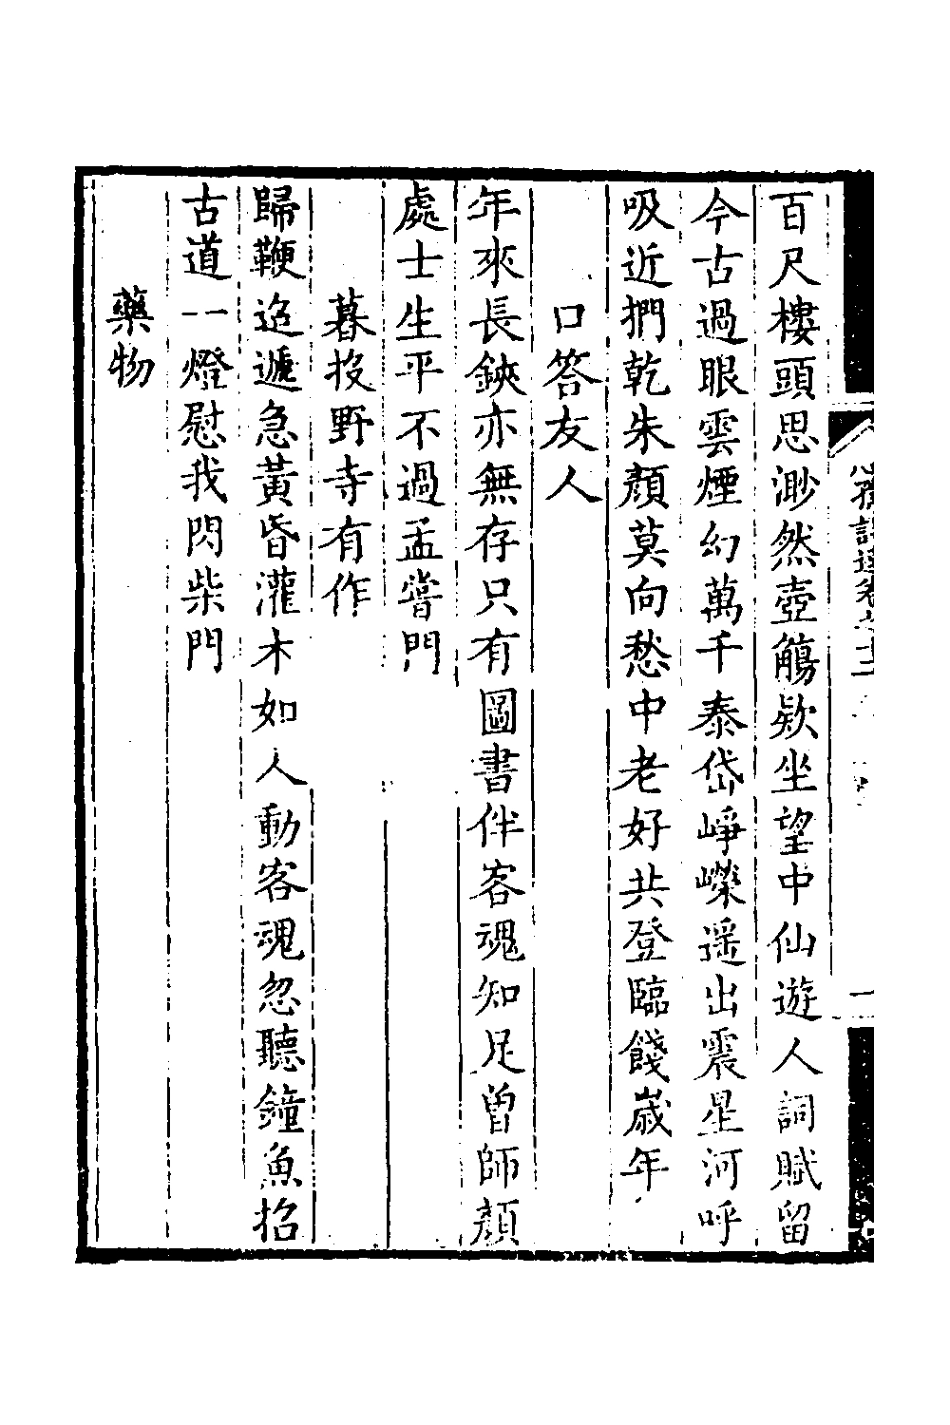 百尺樓頭思渺然壺觴欵坐望中仙遊人詞賦留
今古過眼雲煙幻萬千泰岱崢嶸遥出震星河呼
吸近捫乾朱顏莫向愁中老好共登臨餞歲年
口答友人
年來長鋏亦無存只有圖書伴客魂知足曾師顏
處士生平不過孟嘗門
暮投野寺有作
歸鞭迢遞急黃昏灌木如人動客魂忽聽鐘魚招
古道一燈慰我閃柴門
藥物